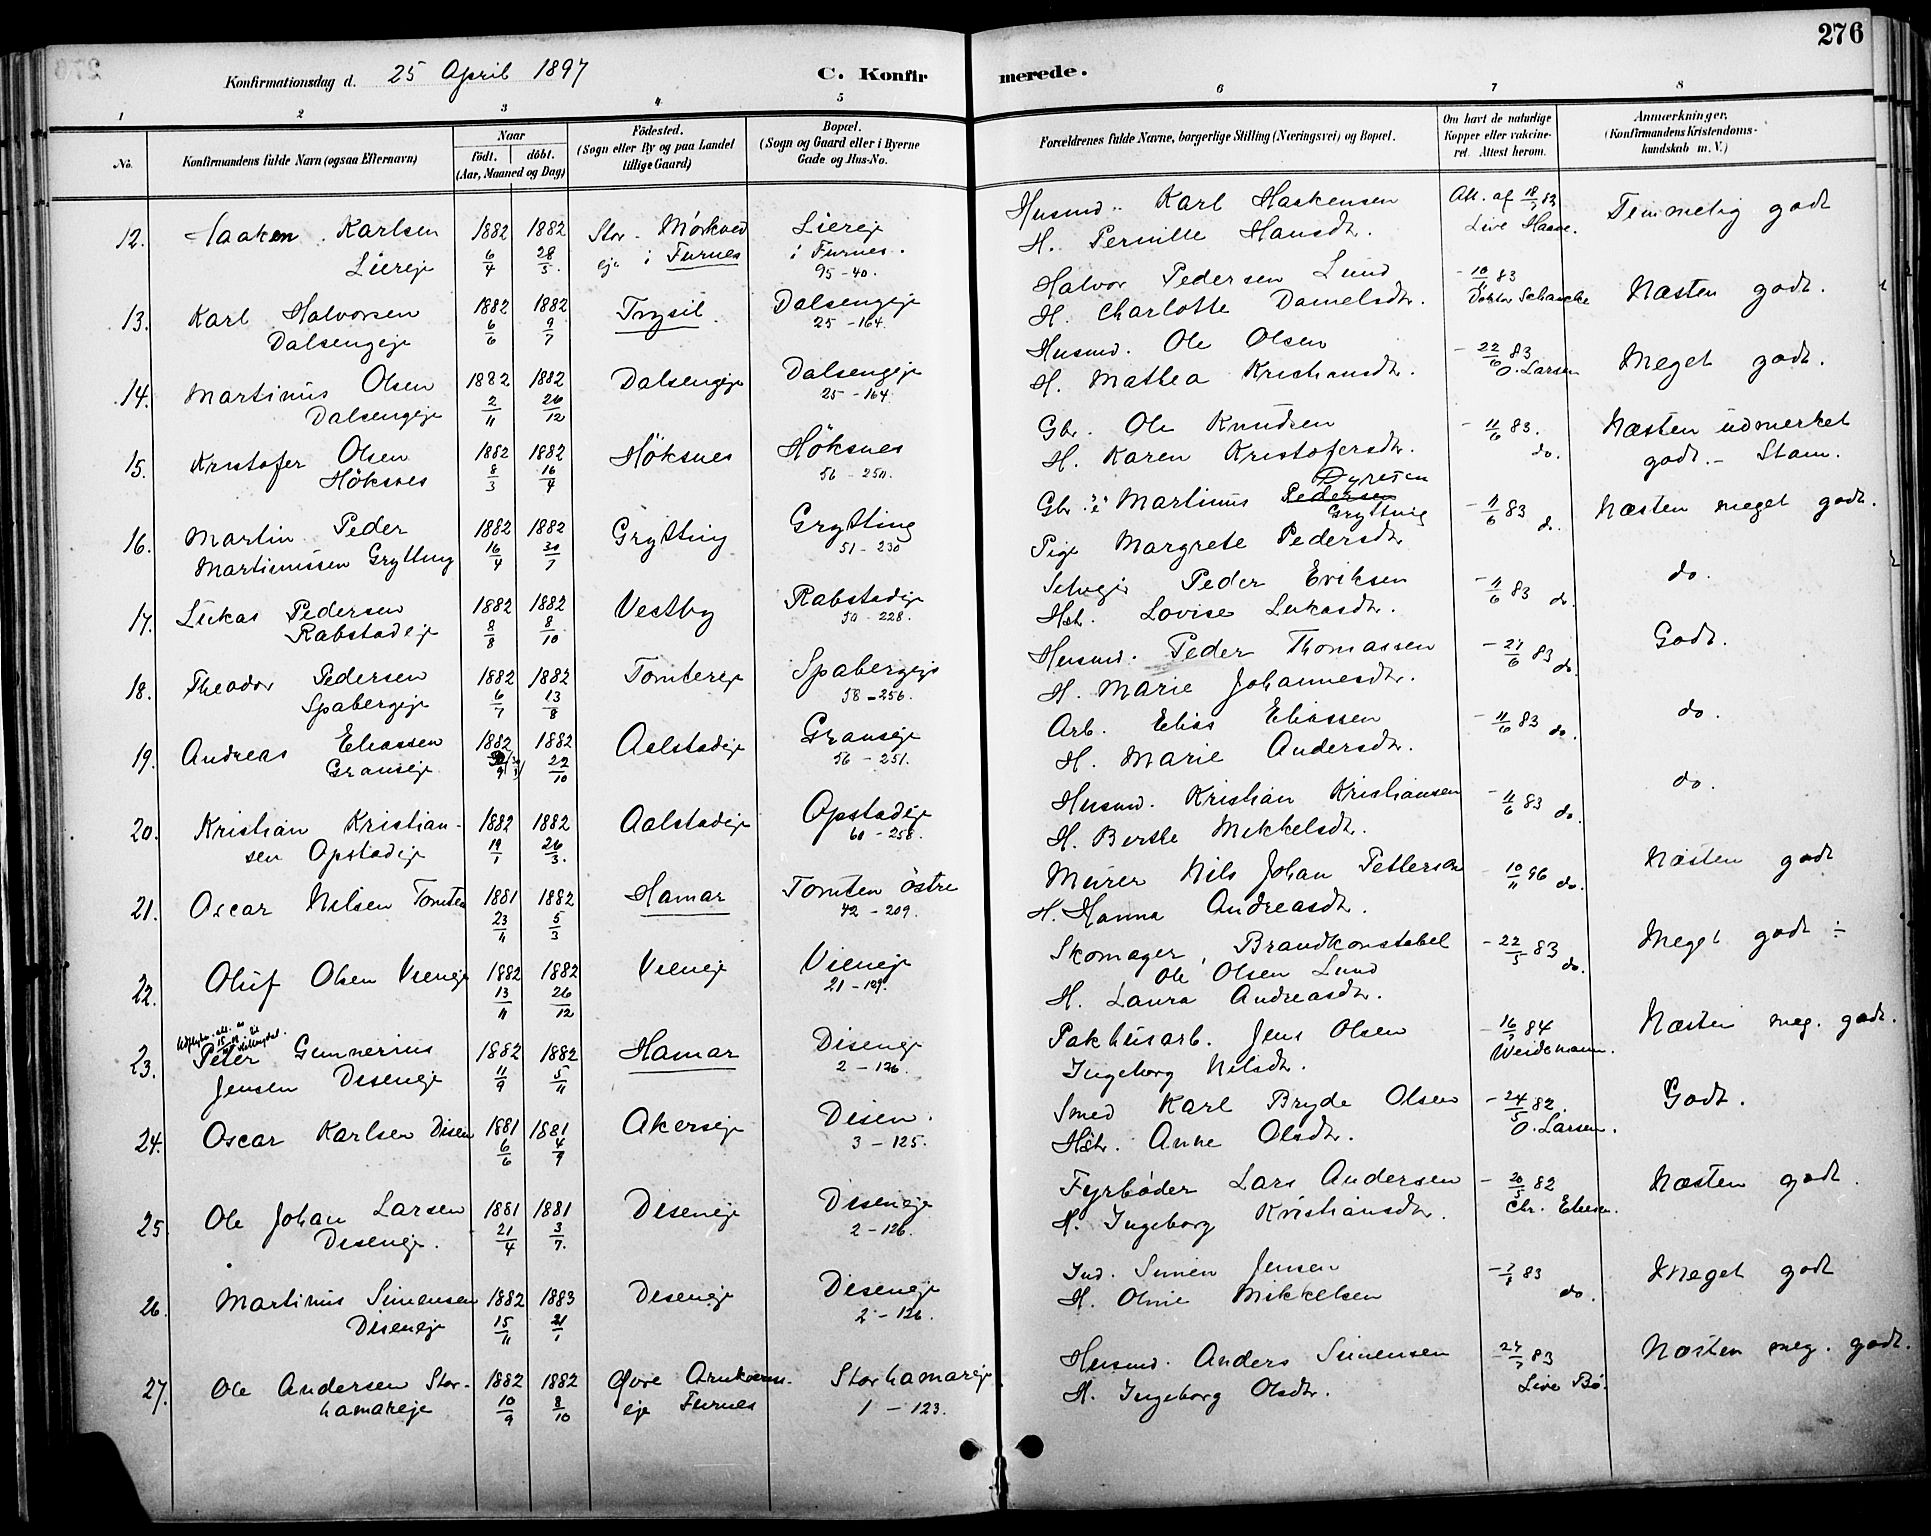 276
Konfirmationsdag d. 25 April 1897
C. Konfirmerede.
1 2 3 4 5 6 7 8
No. Konfirmandens fulde Navn (ogsaa Efternavn) Naar födt. döbt. (Aar, Maaned og Dag) Födested. (Sogn eller By og paa Landet tillige Gaard) Bopæl. (Sogn og Gaard eller i Byerne Gade og Hus-No. Forældrenes fulde Navne, borgerlige Stilling (Næringsvei) og Bopæl. Om havt de naturlige Kopper eller vakcineret. Attest herom. Anmærkninger. (Konfirmandens Kristendomskundskab m. V.)
12. Haaken Karlsen 1882 1882 Stor-Mørkved Liereje Husmd. Karl Haakensen Att. af 18/7 83 Temmelig godt
Liereje 6/4 28/5 eje i Furnes i Furnes. 95-40. H. Pernille Hansdtr. Live Haave.
13. Karl Halvorsen 1882 1882 Trysil. Dalsengeje Halvor Pedersen Lund - 10/11 83 Næsten godt.
Dalsengeje 6/6 9/7 25-164. H. Charlotte Danielsdtr. Doktor Schancke
14. Martinus Olsen 1882 1882 Dalsengeje Dalsengeje Husmd. Ole Olsen - 22/6 83 Meget godt.
Dalsengeje 2/11 26/12 25-164. H. Mathea Kristiansdtr. O. Larsen
15. Kristofer Olsen 1882 1882 Höksnes Höksnes Gbr. Ole Knudsen - 11/6 83. Næsten udmerket
Höksnes 8/3 16/4 56-250. H. Karen Kristofersdtr. do. godt.- Stam.
16. Martin Peder 1882 1882 Grytting Grytting Gbr. Martinus Pedersen Dyresen Grytting - 11/6 83 do. Næsten meget godt.
Martinussen Grytting 16/4 30/7 51-230 Pige Margrete Pedersdtr
17. Lukas Pedersen 1882 1882 Vestby Rabstadeje Selvejer Peder Eriksen - 11/6 83 do. do.
Rabstadeje 8/8 8/10 50-228. Hst. Lovise Lukasdtr.
18. Theodor Pedersen 1882 1882 Tomtereje Spabergeje Husmd. Peder Thomassen - 27/6 83 do. Godt.
Spabergeje 6/7 13/8 58-256. H. Marie Johannesdtr.
19. Andreas Eliassen 1882 1882 Aalstadeje Granseje Arb. Elias Eliassen - 11/6 83 do. do.
Granseje 22/10 56-251. H. Marie Andersdtr.
20. Kristian Kristian- 1882 1882 Aalstadeje Opstadeje Husmd. Kristian Kristiansen - 11/6 83 do. do.
sen Opstadeje 19/1 26/3. 60-258. H. Berthe Mikkelsdtr.
21. Oscar Nilsen Tomten 1881 1882 Hamar Tomten östre Murer Nils Johan Petterson 10/11 96 do. Næsten godt
23/11 5/3 42-209. H. Hanna Andreasdtr.
22. Oluf Olsen Vieneje 1882 1882 Vieneje Vieneje Skomager, Brandkonstabel - 22/5 83 do. Meget godt ÷
13/11 26/12 21-129. Ole Olsen Lund
H. Laura Andreasdtr.
23. Peter Gunnerius 1882 1882 Hamar Diseneje Pakhusarb. Jens Olsen - 16/7 84 Næsten meg. godt.
Jensen Diseneje 11/9 5/11 2-126. Ingeborg Nilsdtr. Weidemann.
24. Oscar Karlsen Disen 1881 1881 Akerseje Disen. Smed Karl Bryde Olsen - 24/5 82. Godt.
6/6 4/9 3-125. Hst. Anne Olsdtr. O. Larsen.
25. Ole Johan Larsen 1881 1881 Diseneje Diseneje Fyrbøder Lars Andersen - 20/5 82 Næsten godt.
Diseneje. 21/4 3/7. 2-126. H. Ingeborg Kristiansdtr. Chr. Eliesen.
26. Martinus Simensen 1882 1883 Diseneje Diseneje Ind. Simen Jensen 83 Meget godt
Diseneje 15/11 21/1 2-126. H. Oline Mikkelsen do.
27. Ole Andersen Stor- 1882 1882 Øvre Arnkvern- Storhamareje Husmd. Anders Simensen 27/7 83 Næsten meg. godt.
hamareje 10/9 8/10 eje Furnes 1-123. H. Ingeborg Olsdtr. Live Bø.